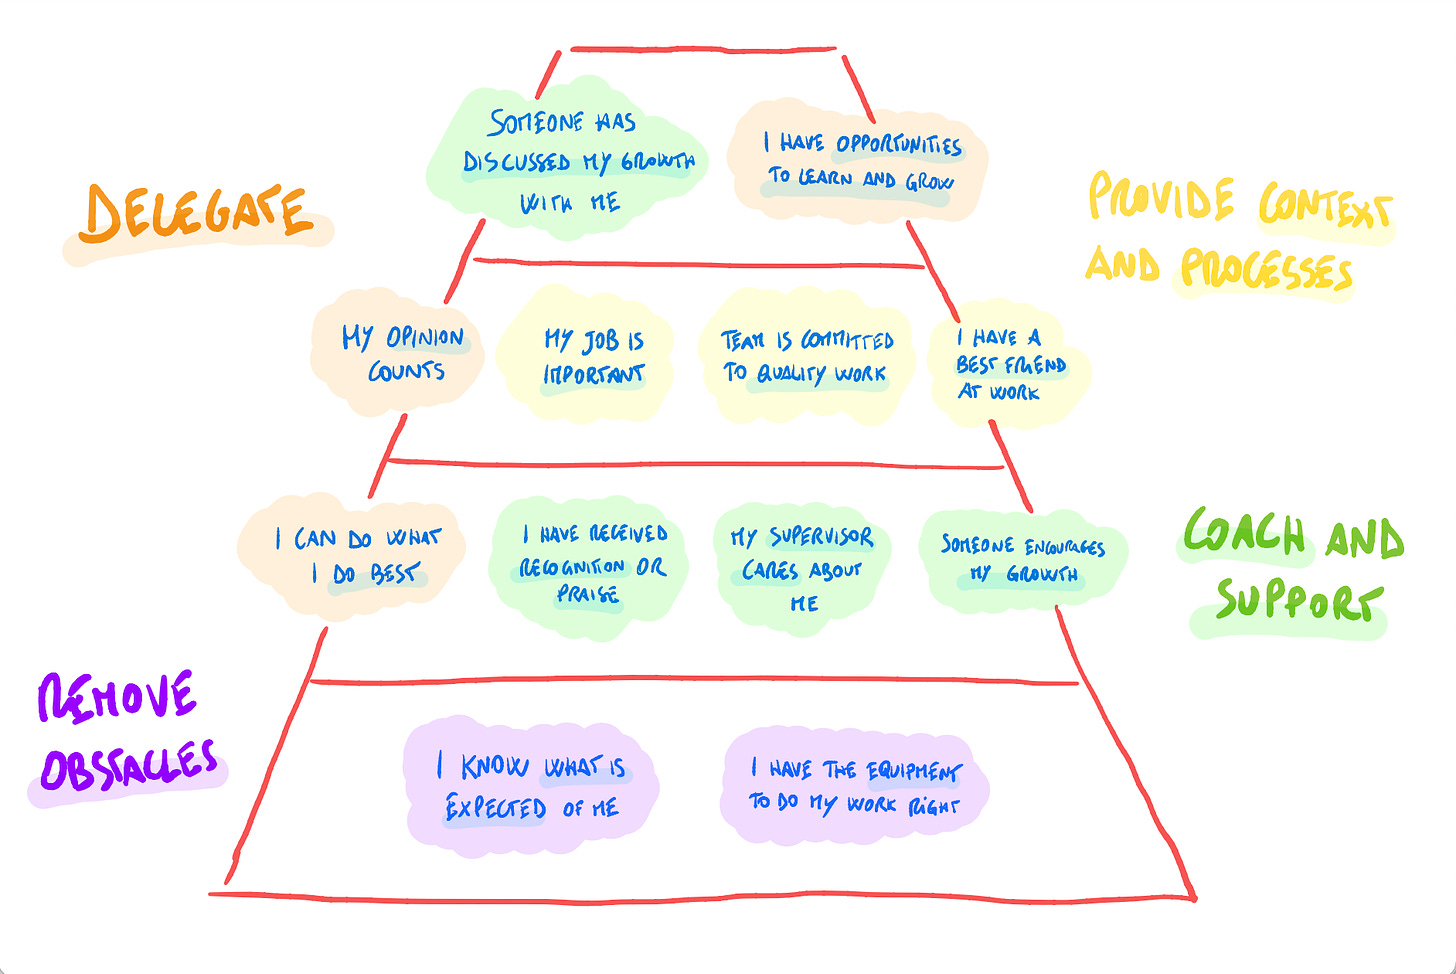 SOMEONE HAS
DISCUSSED MY GROWTH
WITH ME
I HAVE OPPORTUNITIES
TO LEARN AND GROW
DELEGATE
PROVIDE CONTEXT
AND PROCESSES
MY OPINION
COUNTS
MY JOB IS
IMPORTANT
TEAM IS COMMITTED
TO QUALITY WORK
I HAVE A
BEST FRIEND
AT WORK
I CAN DO WHAT
I DO BEST
I HAVE RECEIVED
RECOGNITION OR
PRAISE
MY SUPERVISOR
CARES ABOUT
ME
SOMEONE ENCOURAGES
MY GROWTH
COACH AND
SUPPORT
REMOVE
OBSTACLES
I KNOW WHAT IS
EXPECTED OF ME
I HAVE THE EQUIPMENT
TO DO MY WORK RIGHT